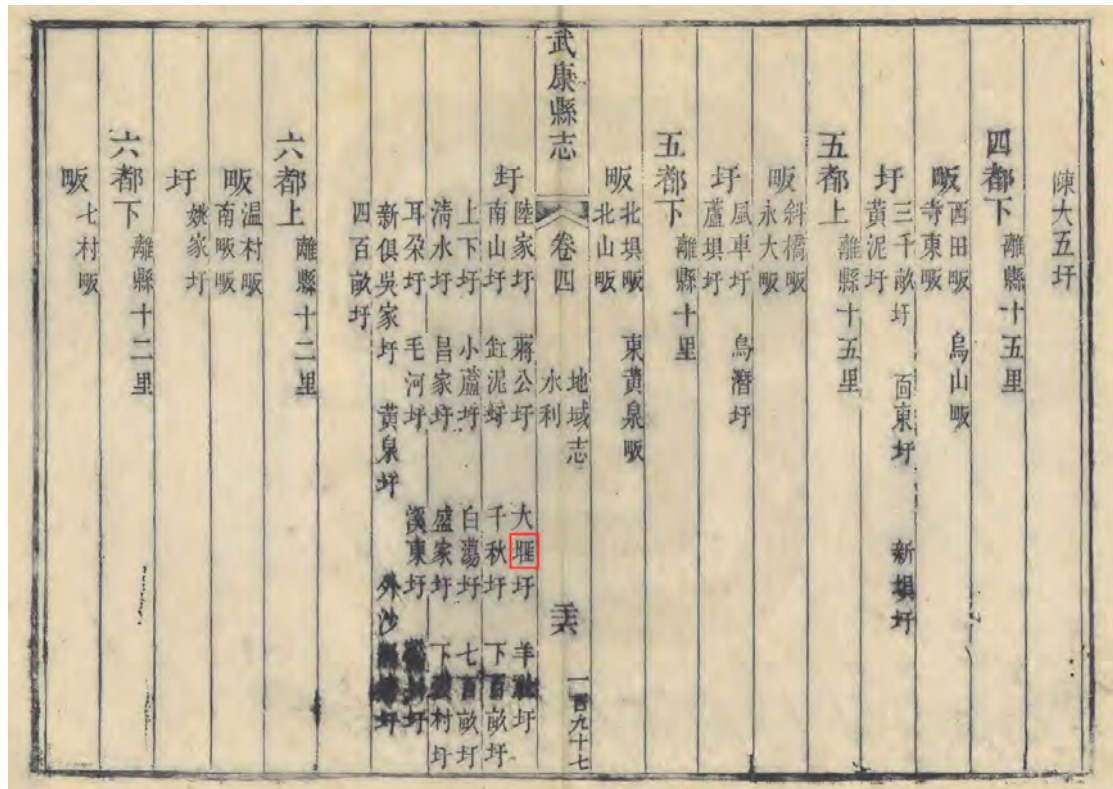 陳大五圩
四都下 離縣十五里
畈 西田畈 烏山畈
寺東畈
圩 三千畝圩 面東圩 新埧圩
黃泥圩
五都上 離縣十五里
畈 斜橋畈
永大畈
圩 風車圩 烏潛圩
蘆埧圩
五都下 離縣十里
畈 北埧畈 東黃泉畈
北山畈
武康縣志 卷四 地域志
水利
一百九十七
圩 陸家圩 蔣公圩 大堰圩 羊圩
南山圩 缸泥圩 千秋圩 下百畝圩
上下圩 小蘆圩 白蕩圩 七百畝圩
淸水圩 昌家圩 盛家圩 下村圩
耳朶圩 毛河圩 溪東圩 圩
新俱吳家圩 黃泉圩 外沙圩
四百畝圩
六都上 離縣十二里
畈 溫村畈
南畈畈
圩 姚家圩
六都下 離縣十二里
畈 七村畈